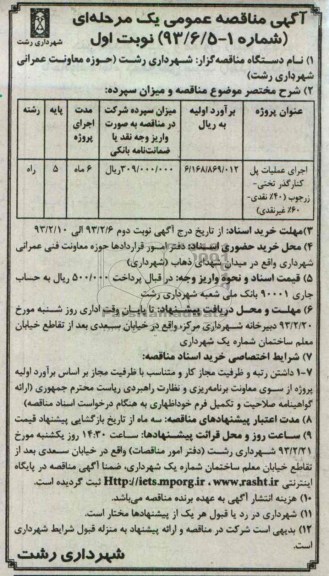 آگهی مناقصه عمومی یک مرحله‌ای
(شماره ۱-۹۳/۶/۵) نوبت اول
شهرداری رشت
۱) نام دستگاه مناقصه‌گزار: شهرداری رشت (حوزه معاونت عمرانی
شهرداری رشت)
۲) شرح مختصر موضوع مناقصه و میزان سپرده:
عنوان پروژه
برآورد اولیه به ریال
میزان سپرده شرکت در مناقصه به صورت واریز وجه نقد یا ضمانت‌نامه بانکی
مدت اجرای پروژه
پایه
رشته
اجرای عملیات پل کنارگذر تختی- زرجوب (۴۰٪ نقدی- ۶۰٪ غیرنقدی)
۶/۱۶۸/۸۶۹/۰۱۲
۳۰۹/۰۰۰/۰۰۰ریال
۶ ماه
۵
راه
۳)مهلت خرید اسناد: از تاریخ درج آگهی نوبت دوم ۹۳/۲/۶ الی ۹۳/۲/۱۰
۴) محل خرید حضوری اسناد: دفتر امور قراردادها حوزه معاونت فنی عمرانی
شهرداری واقع در میدان شهدای ذهاب (شهرداری)
۵) قیمت اسناد و نحوه واریز وجه: در قبال پرداخت ۵۰۰/۰۰۰ ریال به حساب
جاری ۹۰۰۰۱ بانک ملی شعبه شهرداری رشت
۶) مهلت و محل دریافت پیشنهاد: تا پایان وقت اداری روز شنبه مورخ
۹۳/۲/۲۰ دبیرخانه شهرداری مرکز، واقع در خیابان سعدی بعد از تقاطع خیابان
معلم ساختمان شماره یک شهرداری
۷) شرایط اختصاصی خرید اسناد مناقصه:
۷-۱ داشتن رتبه و ظرفیت مجاز کار و متناسب با ظرفیت مجاز بر اساس برآورد اولیه
پروژه از سوی معاونت برنامه‌ریزی و نظارت راهبردی ریاست محترم جمهوری (ارائه
گواهینامه صلاحیت و تکمیل فرم خوداظهاری به هنگام درخواست اسناد مناقصه)
۸) مدت اعتبار پیشنهادهای مناقصه: سه ماه از تاریخ بازگشایی پیشنهاد قیمت
۹) ساعت روز و محل قرائت پیشنهادها: ساعت ۱۴:۳۰ روز یکشنبه مورخ
۹۳/۲/۲۱ شهرداری رشت (دفتر امور مناقصات) واقع در خیابان سعدی بعد از
تقاطع خیابان معلم ساختمان شماره یک شهرداری، ضمنا آگهی مناقصه در پایگاه
اینترنتی Http://iets.mporg.ir ، www.rasht.ir ثبت گردیده است.
۱۰) هزینه انتشار آگهی به عهده برنده مناقصه می‌باشد.
۱۱) شهرداری در رد یا قبول هر یک از پیشنهادها مختار است.
۱۲) بدیهی است شرکت در مناقصه و ارائه پیشنهاد به منزله قبول شرایط شهرداری
است.
شهرداری رشت